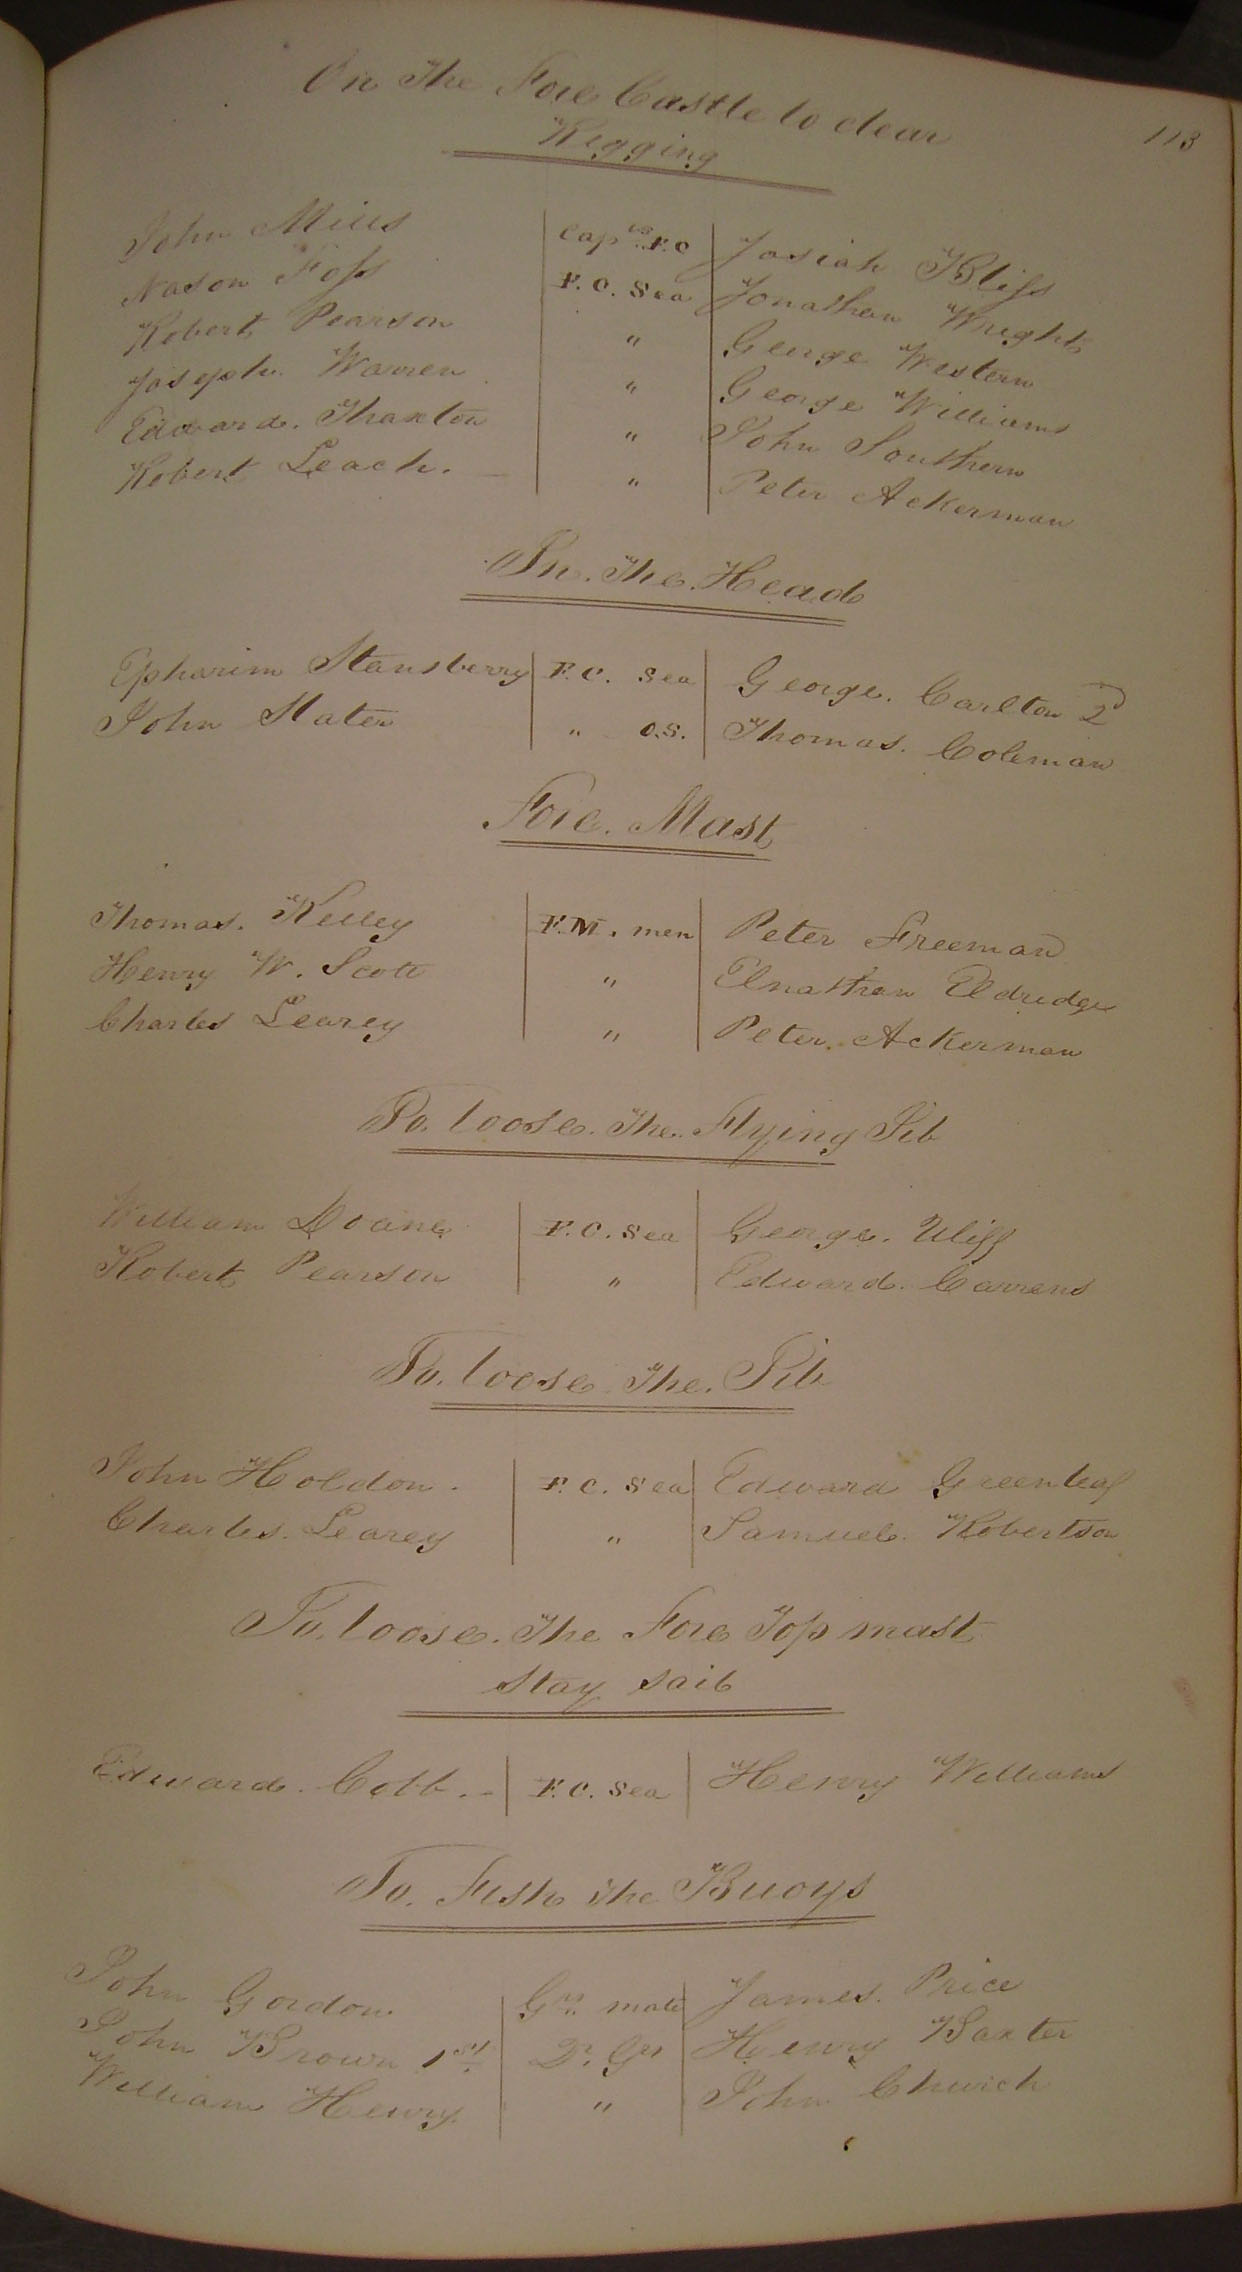 113
On The Fore Castle to clear
Rigging
John Mills Capns F.C Josiah Bliss
Nason Foss F.C. Sea Jonathan Wright
Robert Pearson " George Western
Joseph. Warren " George Williams
Edward. Thaxton " John Southern
Robert Leach. " Peter Ackerman
In. The. Head
Epharim Stansberry F.C. Sea George. Carlton 2d
John Slater " O.S. Thomas. Coleman
Fore. Mast
Thomas. Kelley F.M. men Peter Freeman
Henry W. Scott " Elnathan Eldridge
Charles Learey " Peter. Ackerman
To. loose. The. Flying Jib
William Doane F.C. Sea George.
Robert Pearson " Edward. Carrens
To. loose The. Jib
John Holdon. F.C. Sea Edward Greenleaf
Charles. Learey " Samuel. Robertson
To. loose. The Fore Top mast
Stay sail
Edward. Cobb. - F.C. Sea Henry Williams
To. Fish the Buoys
John Gordon Grs. mate James. Price
John Brown 1st Qr. Grs Henry Baxter
William Henry " John Church